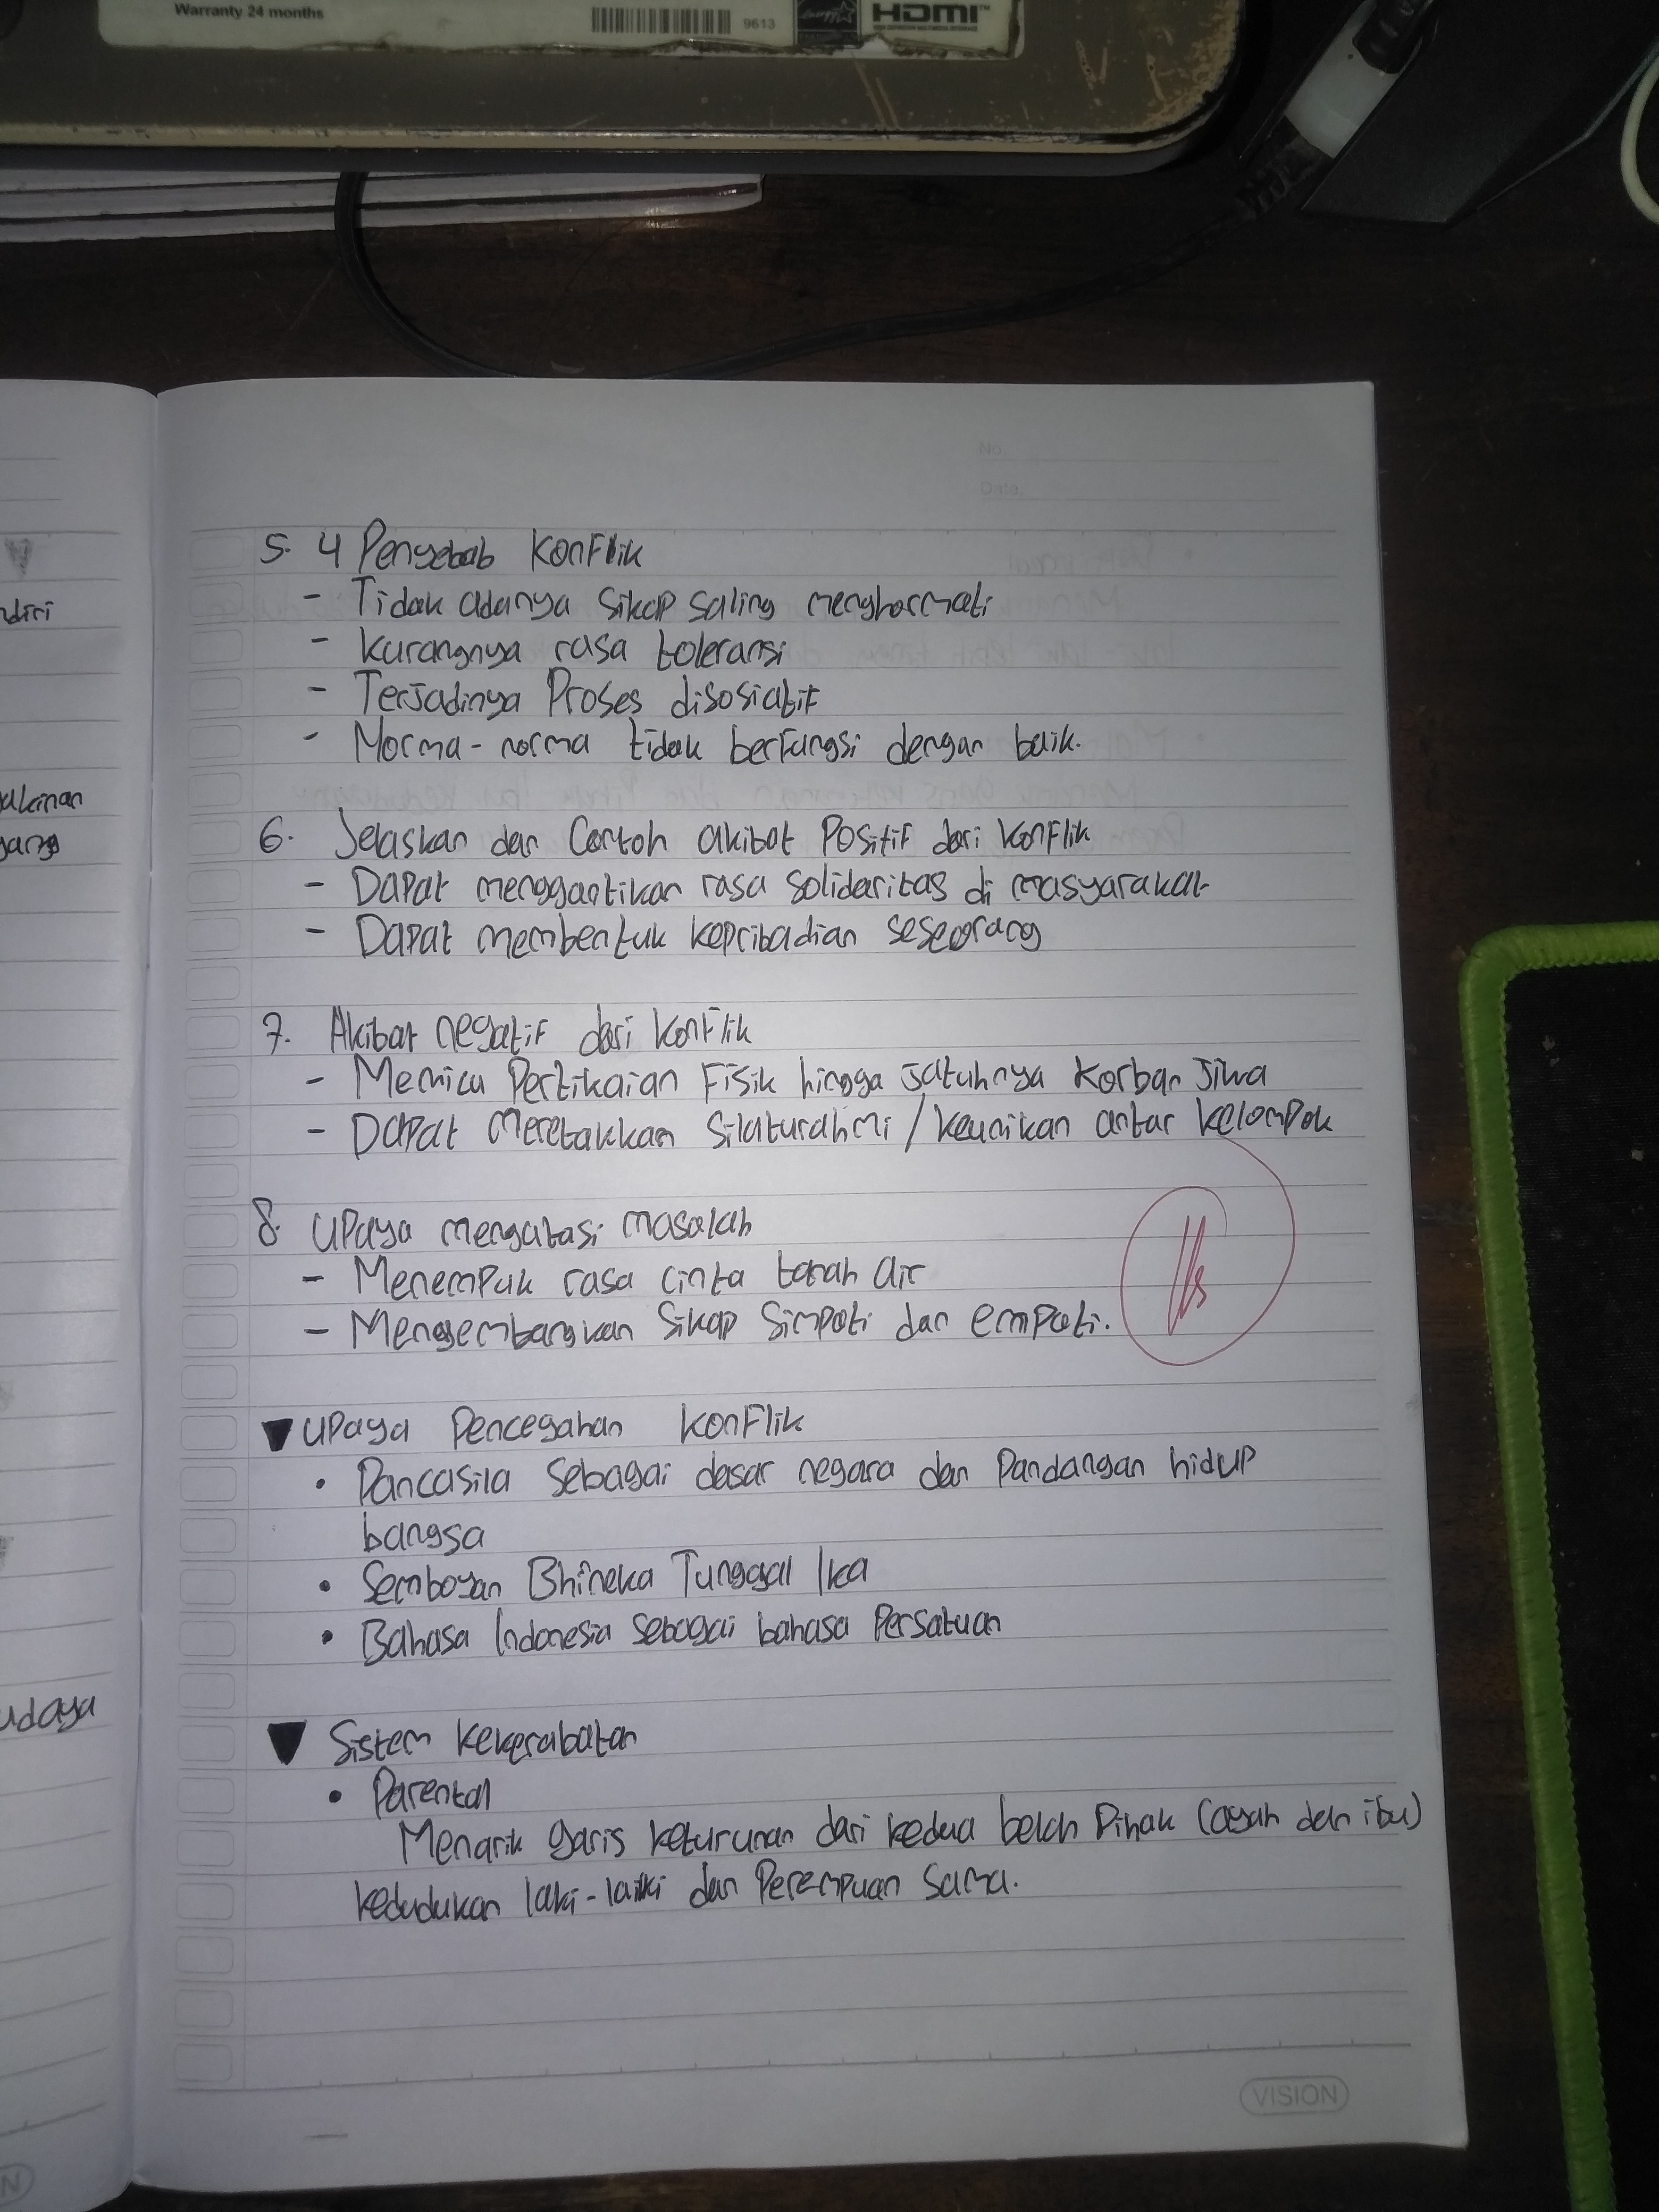 Warranty 24 months
9613
HDMI™
No.
Date.
ndiri
gang
udaya
5. 4 Penyebab Konflik
- Tidak adanya sikap saling menghormati
- kurangnya rasa toleransi
- Terjadinya Proses disosiatif
- Norma-norma tidak berfungsi dengan baik.
6. Jelaskan dan Contoh akibat Positif dari Konflik
- Dapat menggantikan rasa solidaritas di masyarakat
- Dapat membentuk kepribadian seseorang
7. Akibat negatif dari konflik
- Memicu Pertikaian Fisik hingga jatuhnya Korban Jiwa
- Dapat Meretakkan Silaturahmi / Keunikan antar kelompok
8. Upaya mengatasi masalah
- Menempuk rasa cinta tanah air
- Mengembangkan Sikap Simpati dan empati.
▼ Upaya Pencegahan Konflik
• Pancasila Sebagai dasar negara dan Pandangan hidup
bangsa
• Semboyan Bhineka Tunggal Ika
• Bahasa Indonesia sebagai bahasa Persatuan
▼ Sistem kekerabatan
• Parental
Menarik garis keturunan dari kedua belah Pihak (ayah dan ibu)
kedudukan laki-laiki dan Perempuan Sama.
VISION